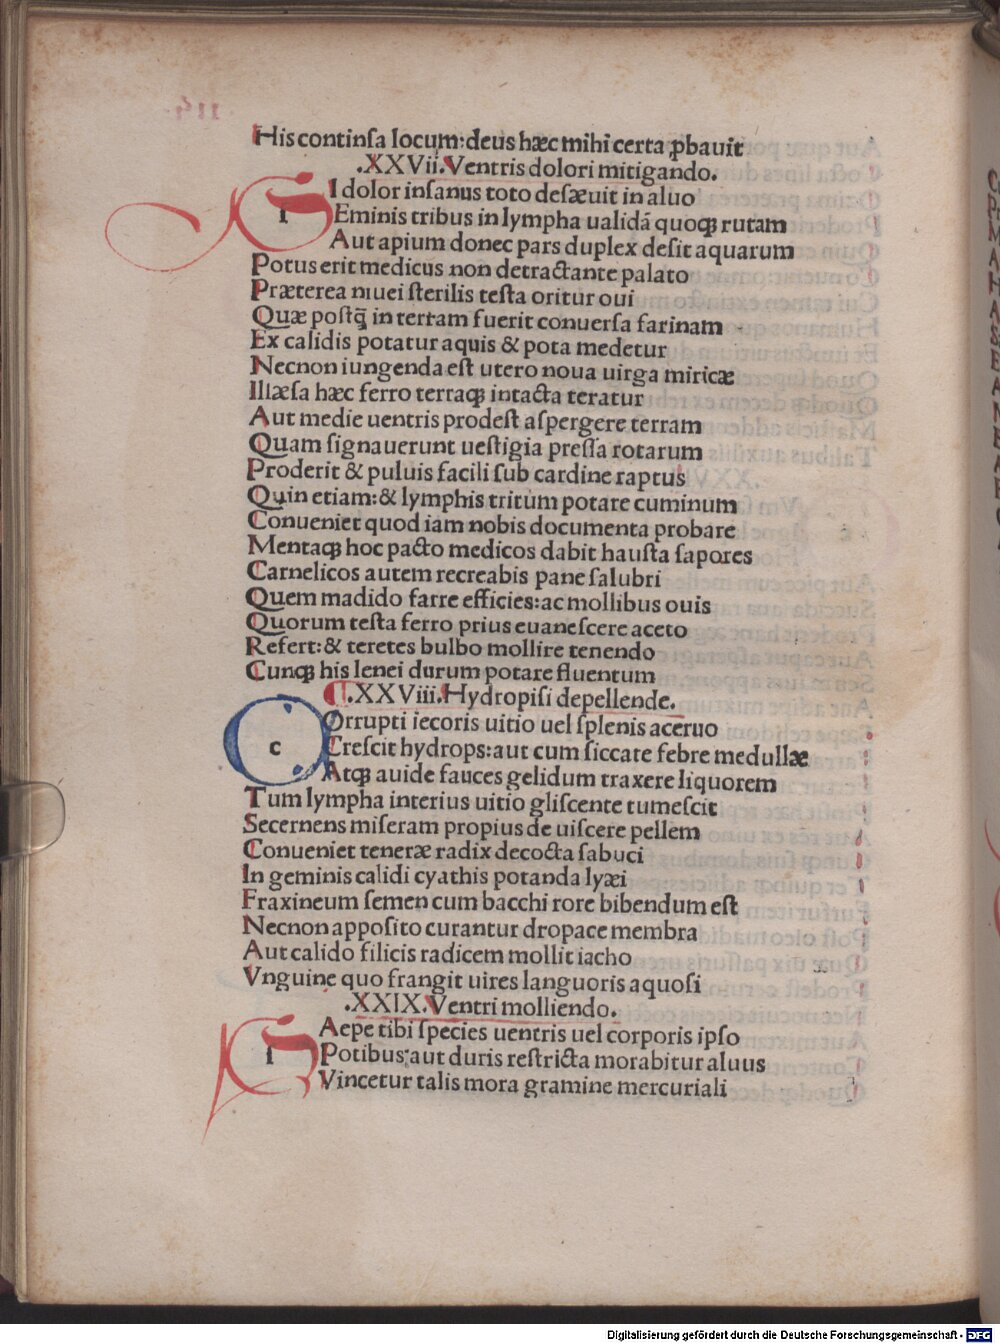 His continſa locum: deus hæc mihi certa ꝓbauit
.XXVii. Ventris dolori mitigando.
SI dolor inſanus toto deſæuit in aluo
Eminis tribus in lympha ualidā quoqꝫ rutam
Aut apium donec pars duplex deſit aquarum
Potus erit medicus non detractante palato
Præterea niuei ſterilis teſta oritur oui
Quæ poſtq̄ in terram fuerit conuerſa farinam
Ex calidis potatur aquis & pota medetur
Necnon iungenda eſt utero noua uirga miricæ
Illæſa hæc ferro terraqꝫ intacta teratur
Aut medie uentris prodeſt aſpergere terram
Quam ſignauerunt ueſtigia preſſa rotarum
Proderit & puluis facili ſub cardine raptus
Quin etiam: & lymphis tritum potare cuminum
Conueniet quod iam nobis documenta probare
Mentaqꝫ hoc pacto medicos dabit hauſta ſapores
Carnelicos autem recreabis pane ſalubri
Quem madido farre efficies: ac mollibus ouis
Quorum teſta ferro prius euaneſcere aceto
Refert: & teretes bulbo mollire tenendo
Cunqꝫ his lenei durum potare fluentum
.XXViii. Hydropiſi depellende.
COrrupti iecoris uitio uel ſplenis aceruo
Creſcit hydrops: aut cum ſiccate febre medullæ
Atqꝫ auide fauces gelidum traxere liquorem
Tum lympha interius uitio gliſcente tumeſcit
Secernens miſeram propius de uiſcere pellem
Conueniet teneræ radix decocta ſabuci
In geminis calidi cyathis potanda lyæi
Fraxineum ſemen cum bacchi rore bibendum eſt
Necnon appoſito curantur dropace membra
Aut calido filicis radicem mollit iacho
Vnguine quo frangit uires languoris aquoſi
.XXIX. Ventri molliendo.
SAepe tibi ſpecies uentris uel corporis ipſo
Potibus: aut duris reſtricta morabitur aluus
Vincetur talis mora gramine mercuriali
Digitalisierung gefördert durch die Deutsche Forschungsgemeinschaft - DFG